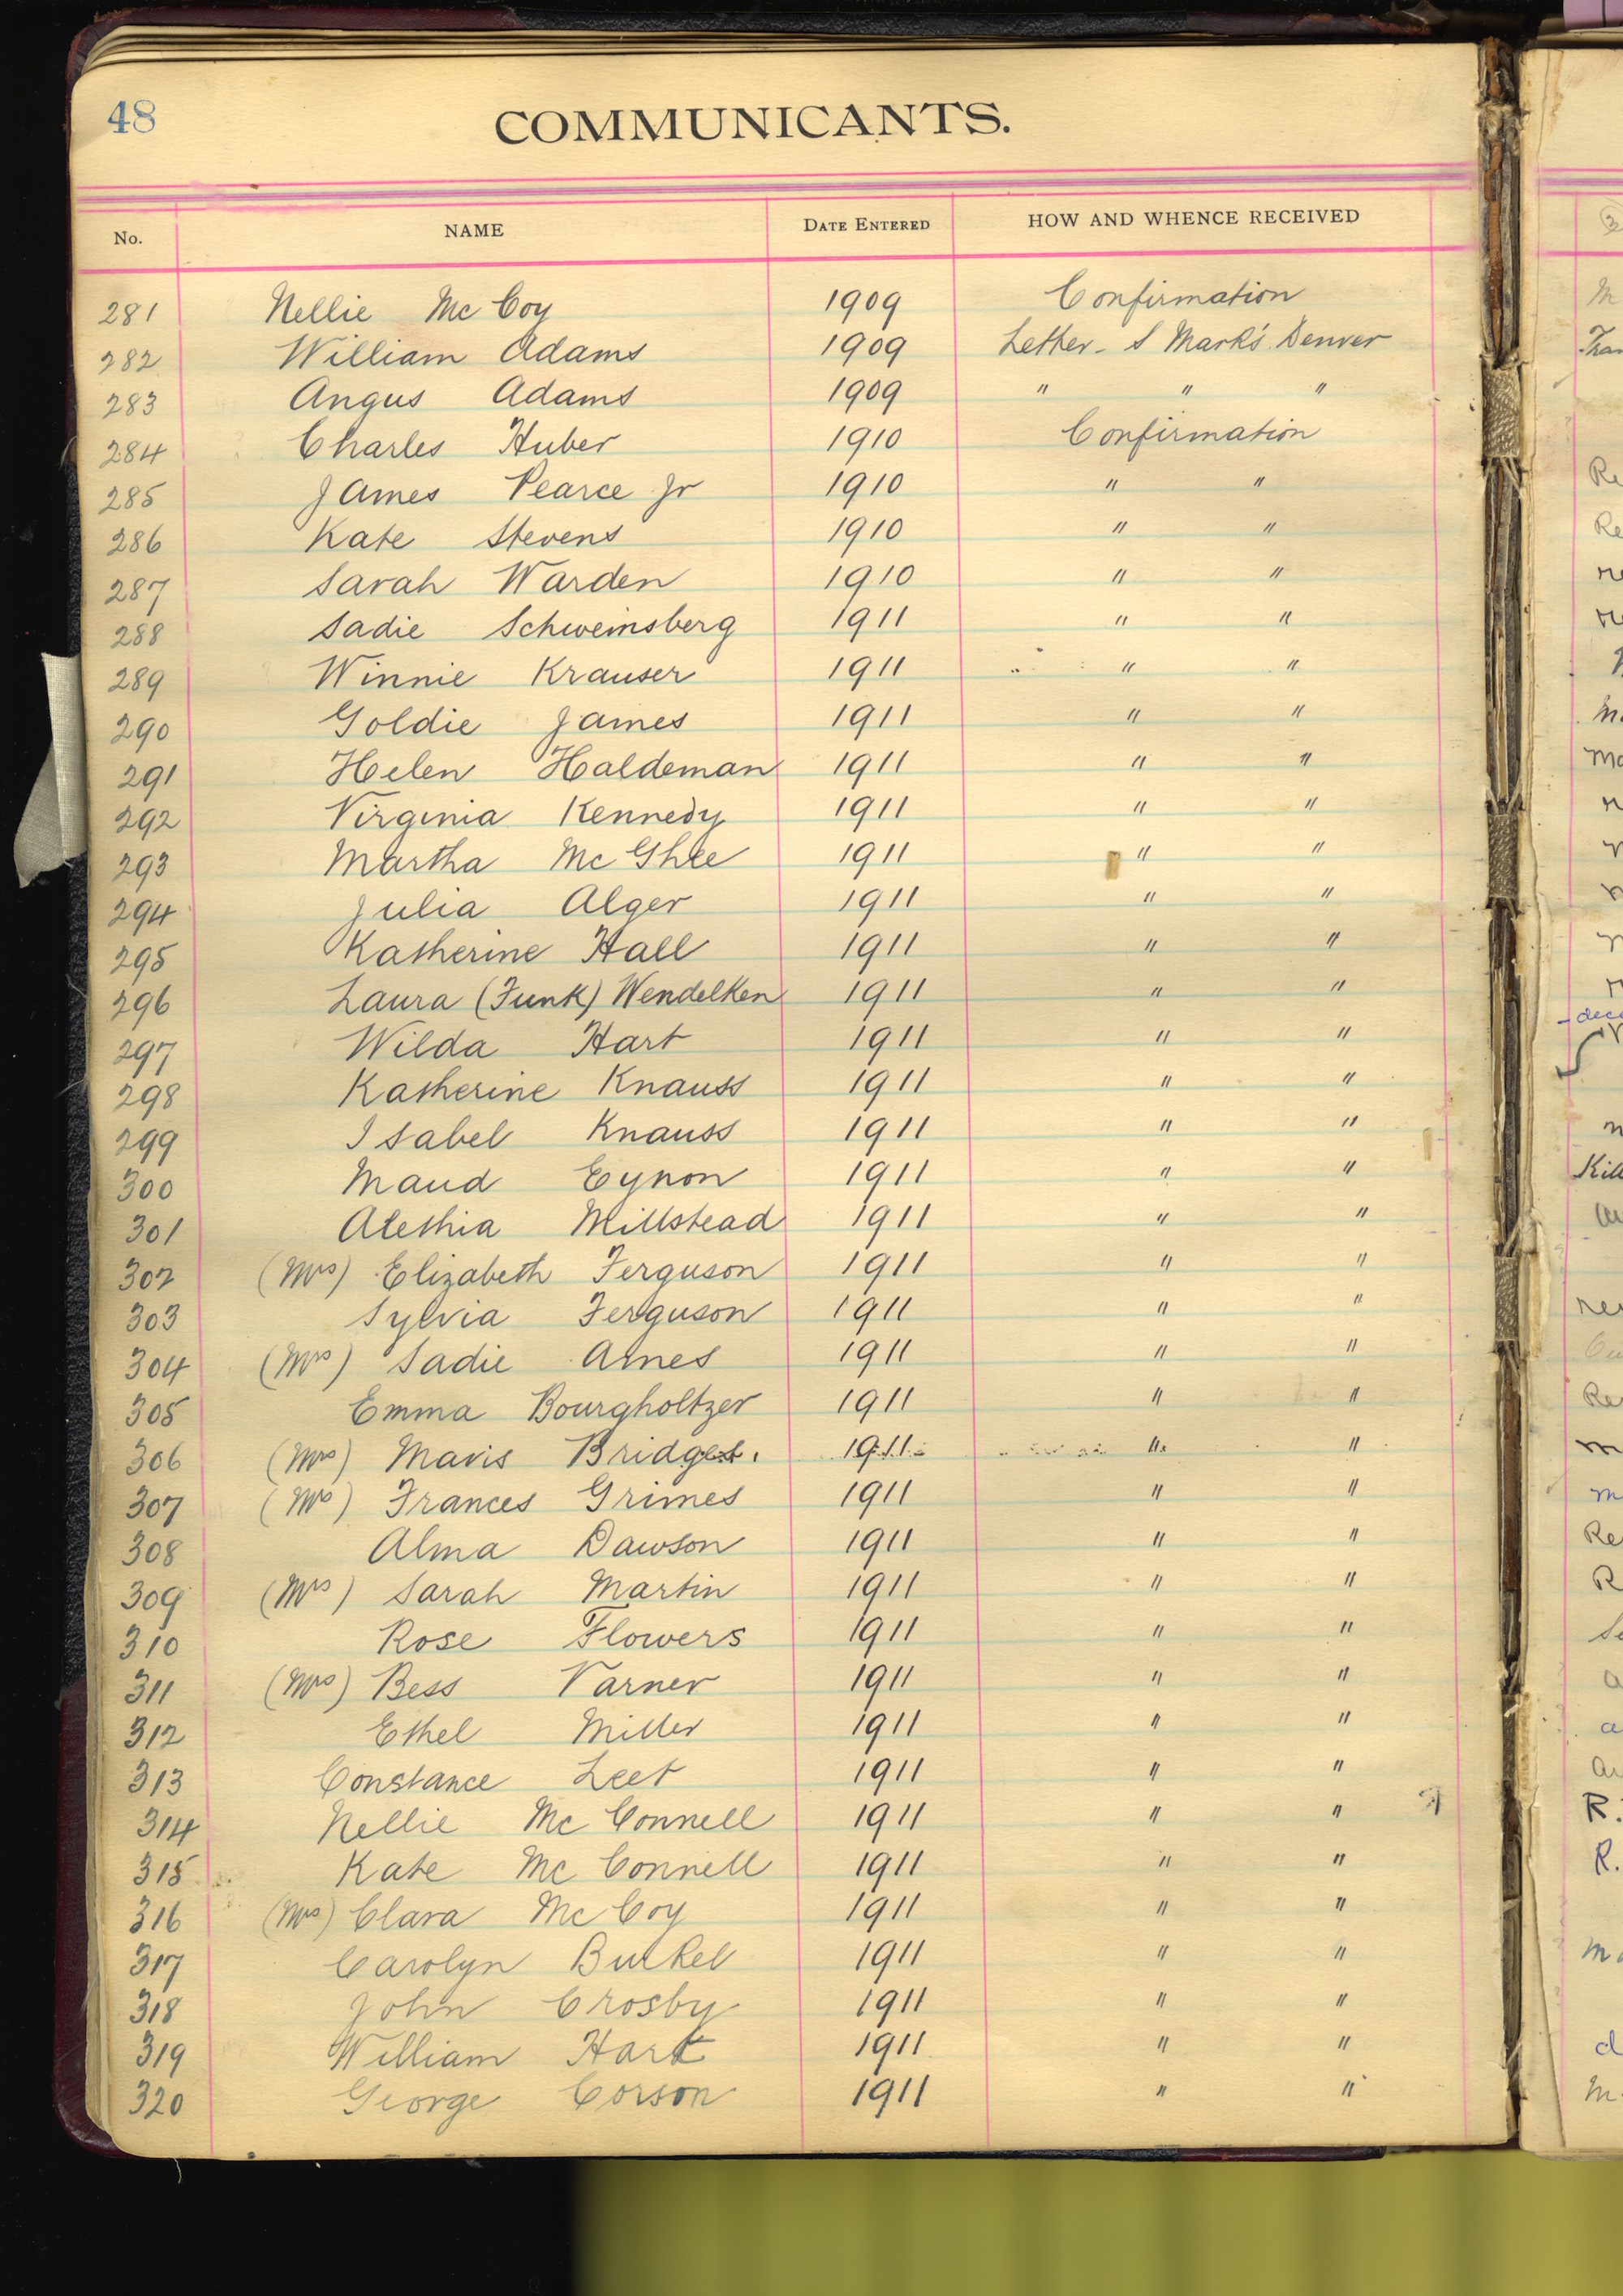 48
COMMUNICANTS.
No. NAME DATE ENTERED HOW AND WHENCE RECEIVED
281 Nellie McCoy 1909 Confirmation
282 William Adams 1909 Letter - S Mark's Denver
283 Angus Adams 1909 " " "
284 Charles Huber 1910 Confirmation
285 James Pearce Jr 1910 " "
286 Kate Stevens 1910 " "
287 Sarah Warden 1910 " "
288 Sadie Schweinsberg 1911 " "
289 Winnie Krauser 1911 " "
290 Goldie James 1911 " "
291 Helen Haldeman 1911 " "
292 Virginia Kennedy 1911 " "
293 Martha McGhee 1911 " "
294 Julia Alger 1911 " "
295 Katherine Hall 1911 " "
296 Laura (Funk) Wendelken 1911 " "
297 Wilda Hart 1911 " "
298 Katherine Knauss 1911 " "
299 Isabel Knauss 1911 " "
300 Maud Eynon 1911 " "
301 Alethia Millstead 1911 " "
302 (Mrs) Elizabeth Ferguson 1911 " "
303 Sylvia Ferguson 1911 " "
304 (Mrs) Sadie Ames 1911 " "
305 Emma Bourgholtzer 1911 " "
306 (Mrs) Mavis 1911 " "
307 (Mrs) Frances Grimes 1911 " "
308 Alma Dawson 1911 " "
309 (Mrs) Sarah Martin 1911 " "
310 Rose Flowers 1911 " "
311 (Mrs) Bess Varner 1911 " "
312 Ethel Miller 1911 " "
313 Constance Leet 1911 " "
314 Nellie McConnell 1911 " "
315 Kate McConnell 1911 " "
316 (Mrs) Clara McCoy 1911 " "
317 Carolyn Burkel 1911 " "
318 John Crosby 1911 " "
319 William Hart 1911 " "
320 George Corson 1911 " "